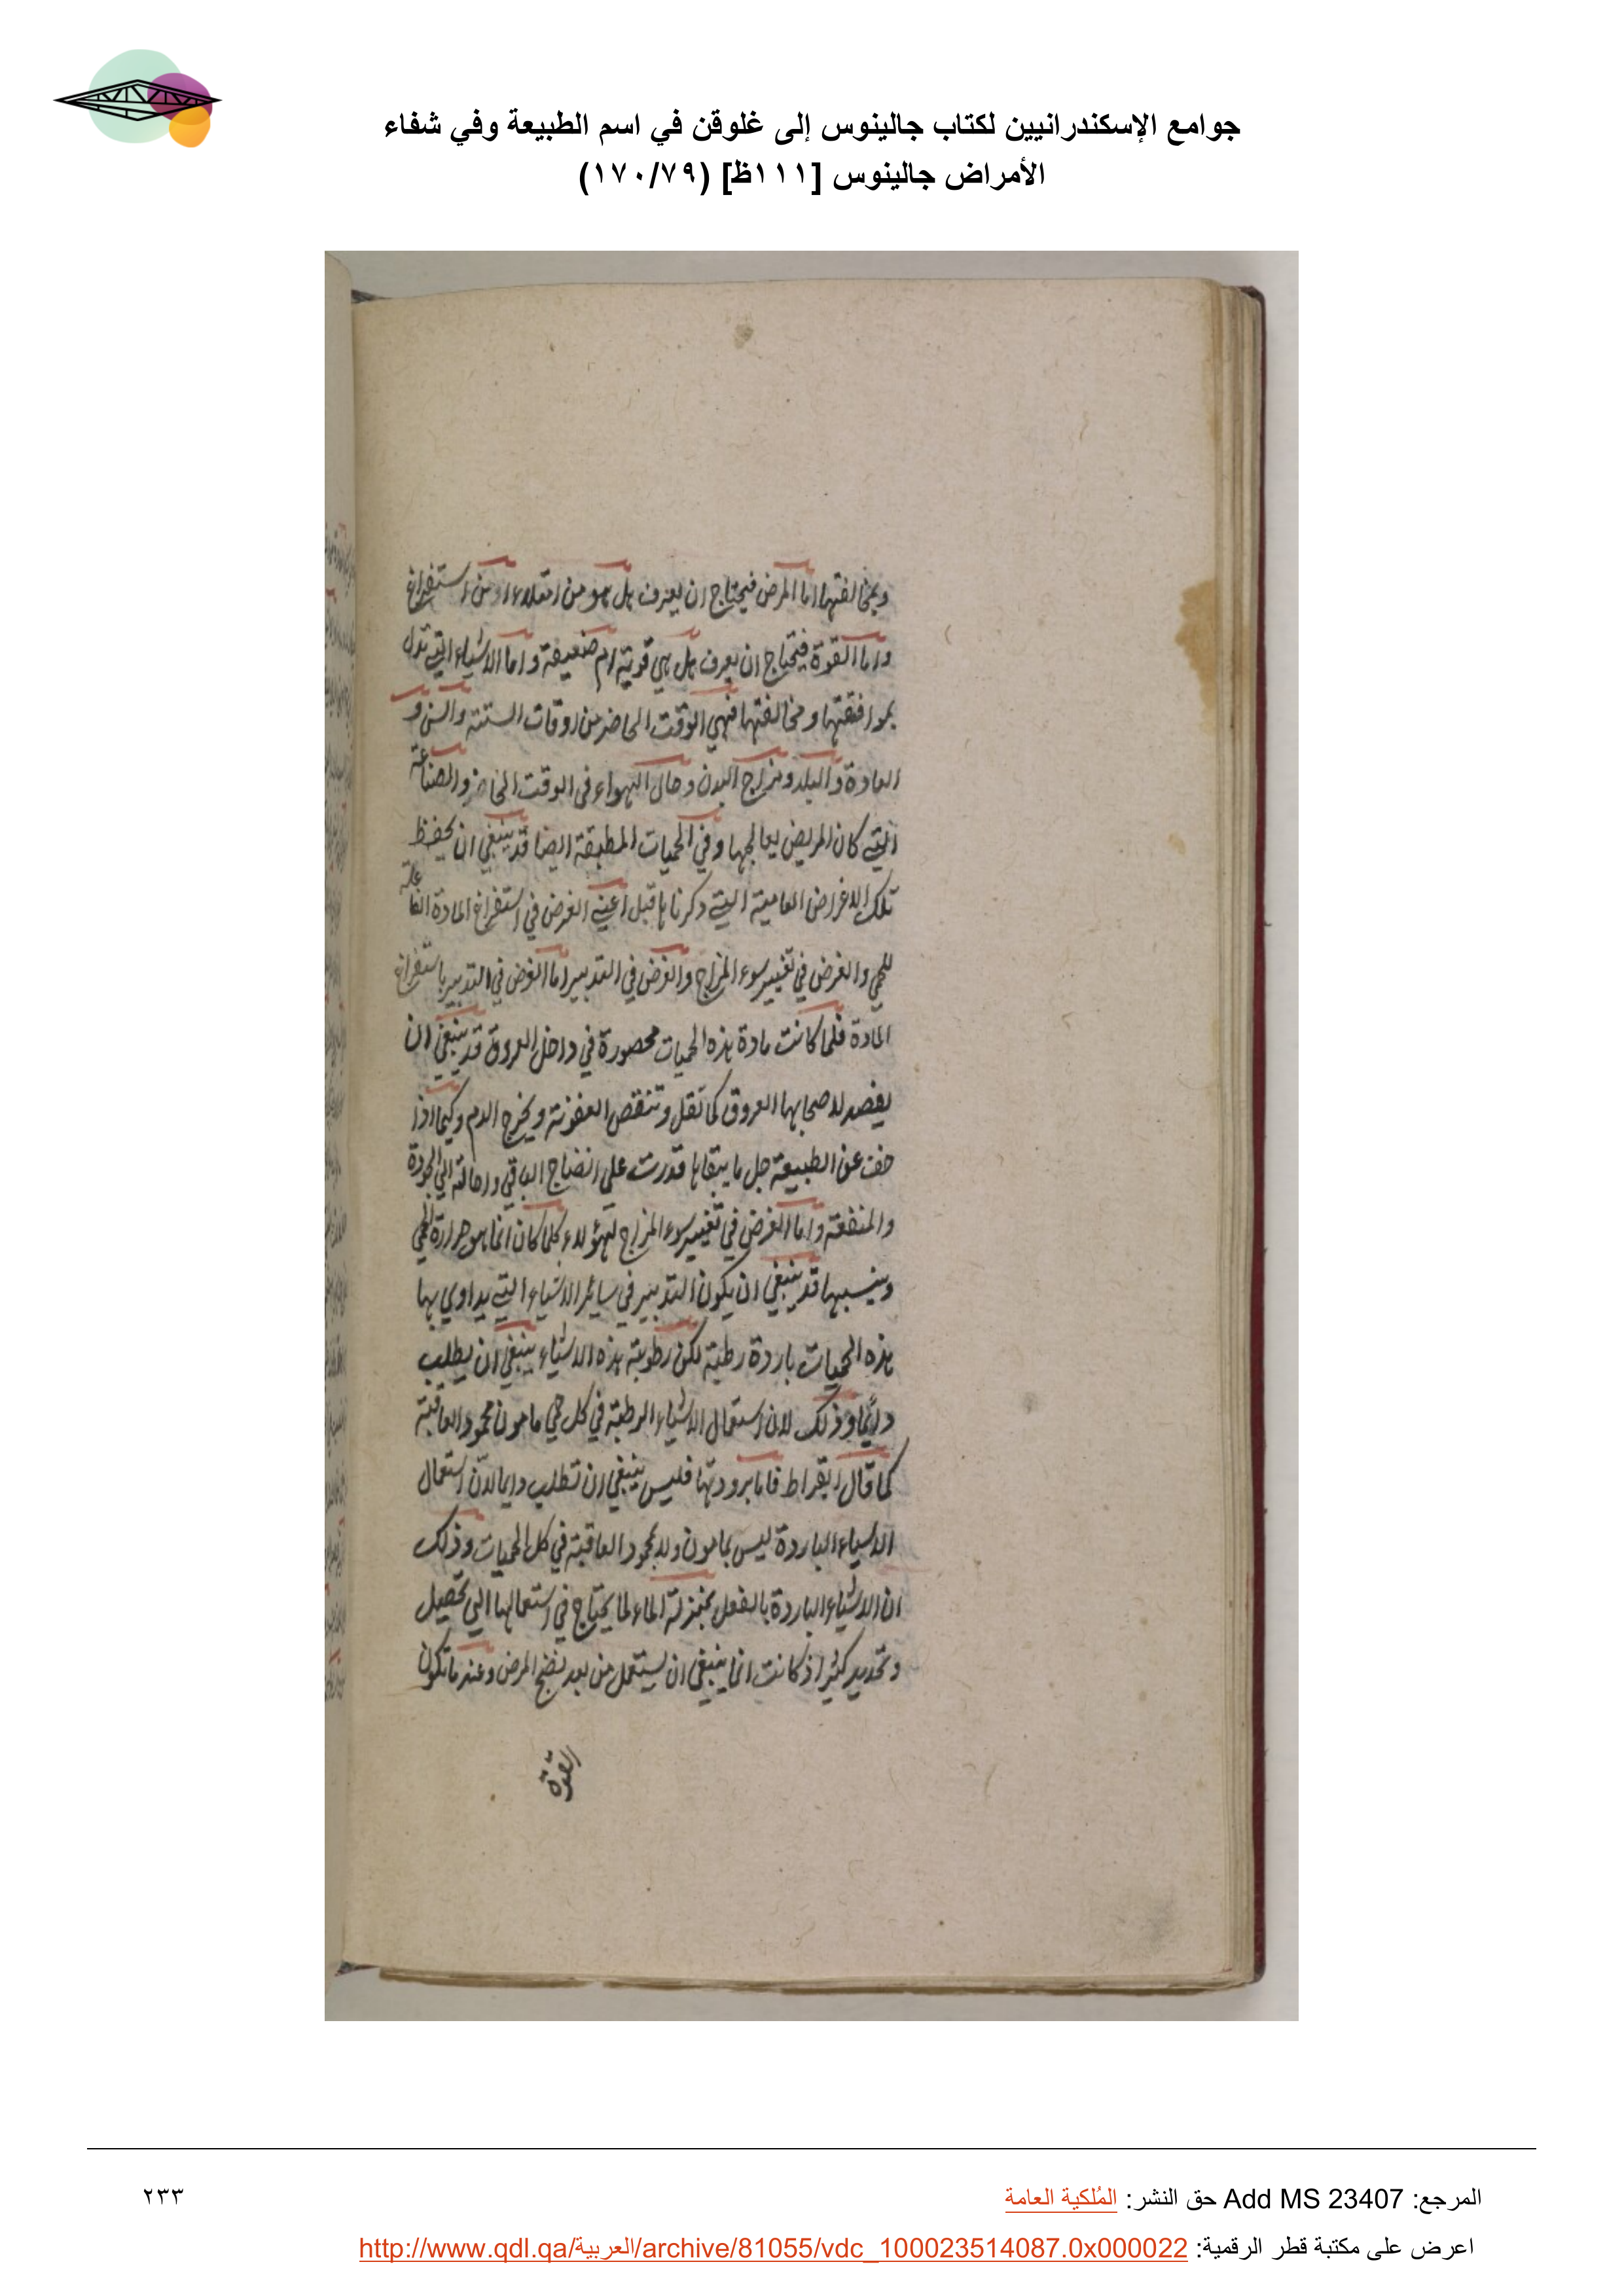 جوامع الإسكندرانيين لكتاب جالينوس إلى غلوقن في اسم الطبيعة وفي شفاء
الأمراض جالينوس [١١١ظ] (١٧٠/٧٩)
وبمخالفتها اما المرض فيحتاج ان يعرف هل هو من امتلاء او من استفراغ
واما القوة فيحتاج ان يعرف هل هي قوية ام ضعيفة واما الاشياء التي تدل
بموافقتها ومخالفتها فهي الوقت الحاضر من اوقات السنة والسن و
العادة والبلد ومزاج البدن وحال الهواء في الوقت الحاضر والصناعة
التي كان المريض يعالجها وفي الحميات المطبقة ايضا قد ينبغي ان يحفظ
تلك الاغراض العامية التي ذكرناها قبل اعني الغرض في استفراغ المادة الفاعلة
للحمى والغرض في تغيير سوء المزاج والغرض في التدبير اما الغرض في التدبير باستفراغ
المادة فلما كانت مادة هذه الحميات محصورة في داخل العروق قد ينبغي ان
يفصد لاصحابها العروق كما تقل وتنقص العفونة ويخرج الدم وكيما اذا
خف عن الطبيعة جل ما يثقلها قدرت على انضاج الباقي واحالته الى الجودة
والمنفعة واما الغرض في تغيير سوء المزاج لهؤلاء كلما كان انما هو حرارة الحمى
ويبسها قد ينبغي ان يكون التدبير في سائر الاشياء التي يداوي بها
هذه الحميات باردة رطبة لكن رطوبة هذه الاشياء ينبغي ان يطلب
دائما وذلك لان استعمال الاشياء الرطبة في كل حمى مامون محمود العاقبة
كما قال ابقراط فاما برودتها فليس ينبغي ان تطلب دايما لان استعمال
الاشياء الباردة ليس بمامون ولا بمحمود العاقبة في كل الحميات وذلك
ان الاشياء الباردة بالفعل بمنزلة الماء لما يحتاج في استعمالها الى تحصيل
وتحديد كثير اذ كانت انما ينبغي ان يستعمل من بعد نضج المرض وعند ما تكون
القوة
المرجع: Add MS 23407 حق النشر: المُلكية العامة
٢٣٣
اعرض على مكتبة قطر الرقمية: http://www.qdl.qa/العربية/archive/81055/vdc_100023514087.0x000022